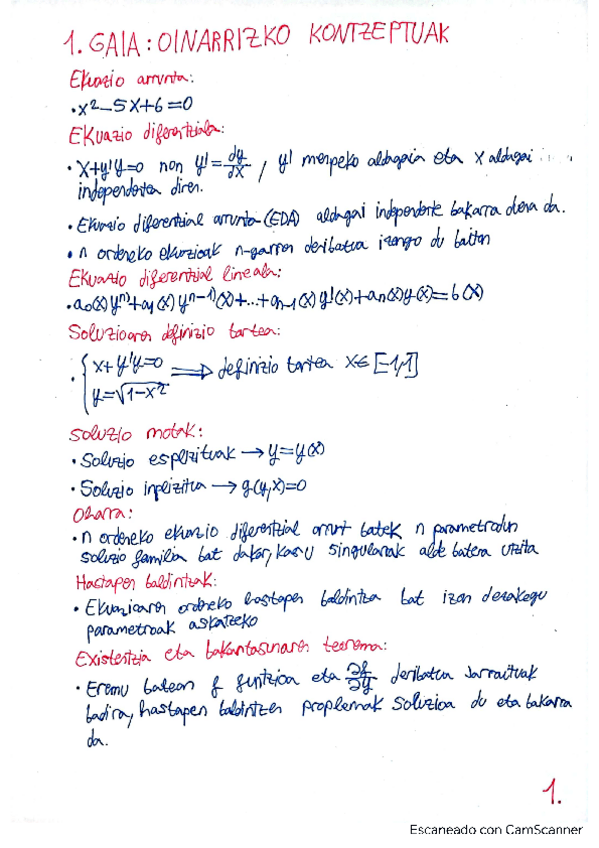 1. GAIA: OINARRIZKO KONTZEPTUAK
Ekuazio arrunta:
• x²-5x+6=0
Ekuazio diferentziala:
• x+y'y=0 non y'=dy/dx, y' menpeko aldagaia eta x aldagai
independentea diren.
• Ekuazio diferentzial arrunta (EDA) aldagai independente bakarra duena da.
• n ordeneko ekuazioak n-garren deribatua izango du baitan
Ekuazio diferentzial lineala:
• a₀(x)yⁿ⁾+a₁(x)yⁿ⁻¹⁾(x)+...+aₙ₋₁(x)y'(x)+aₙ(x)y(x)=b(x)
Soluzioaren definizio tartea:
• { x+y'y=0 ⟹ definizio tartea x∈[-1,1]
y=√1-x²
Soluzio motak:
• Soluzio esplizituak → y=y(x)
• Soluzio inplizitua → g(y,x)=0
Oharra:
• n ordeneko ekuazio diferentzial arrunt batek n parametrodun
soluzio familia bat dakar, kasu singularrak alde batera utzita
Hastapen baldintzak:
• Ekuazioaren ordeneko hastapen baldintza bat izan dezakegu
parametroak askatzeko
Existentzia eta bakartasunaren teorema:
• Eremu batean f funtzioa eta ∂f/∂y deribatua jarraituak
badira, hastapen baldintzen proplemak soluzioa du eta bakarra
da.
1.
Escaneado con CamScanner